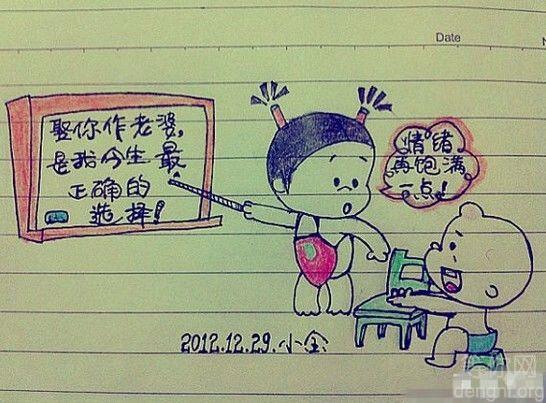 Date
娶你作老婆,
是我今生最
正确的
选择!
情绪
再饱满
一点!
2012.12.29.小全